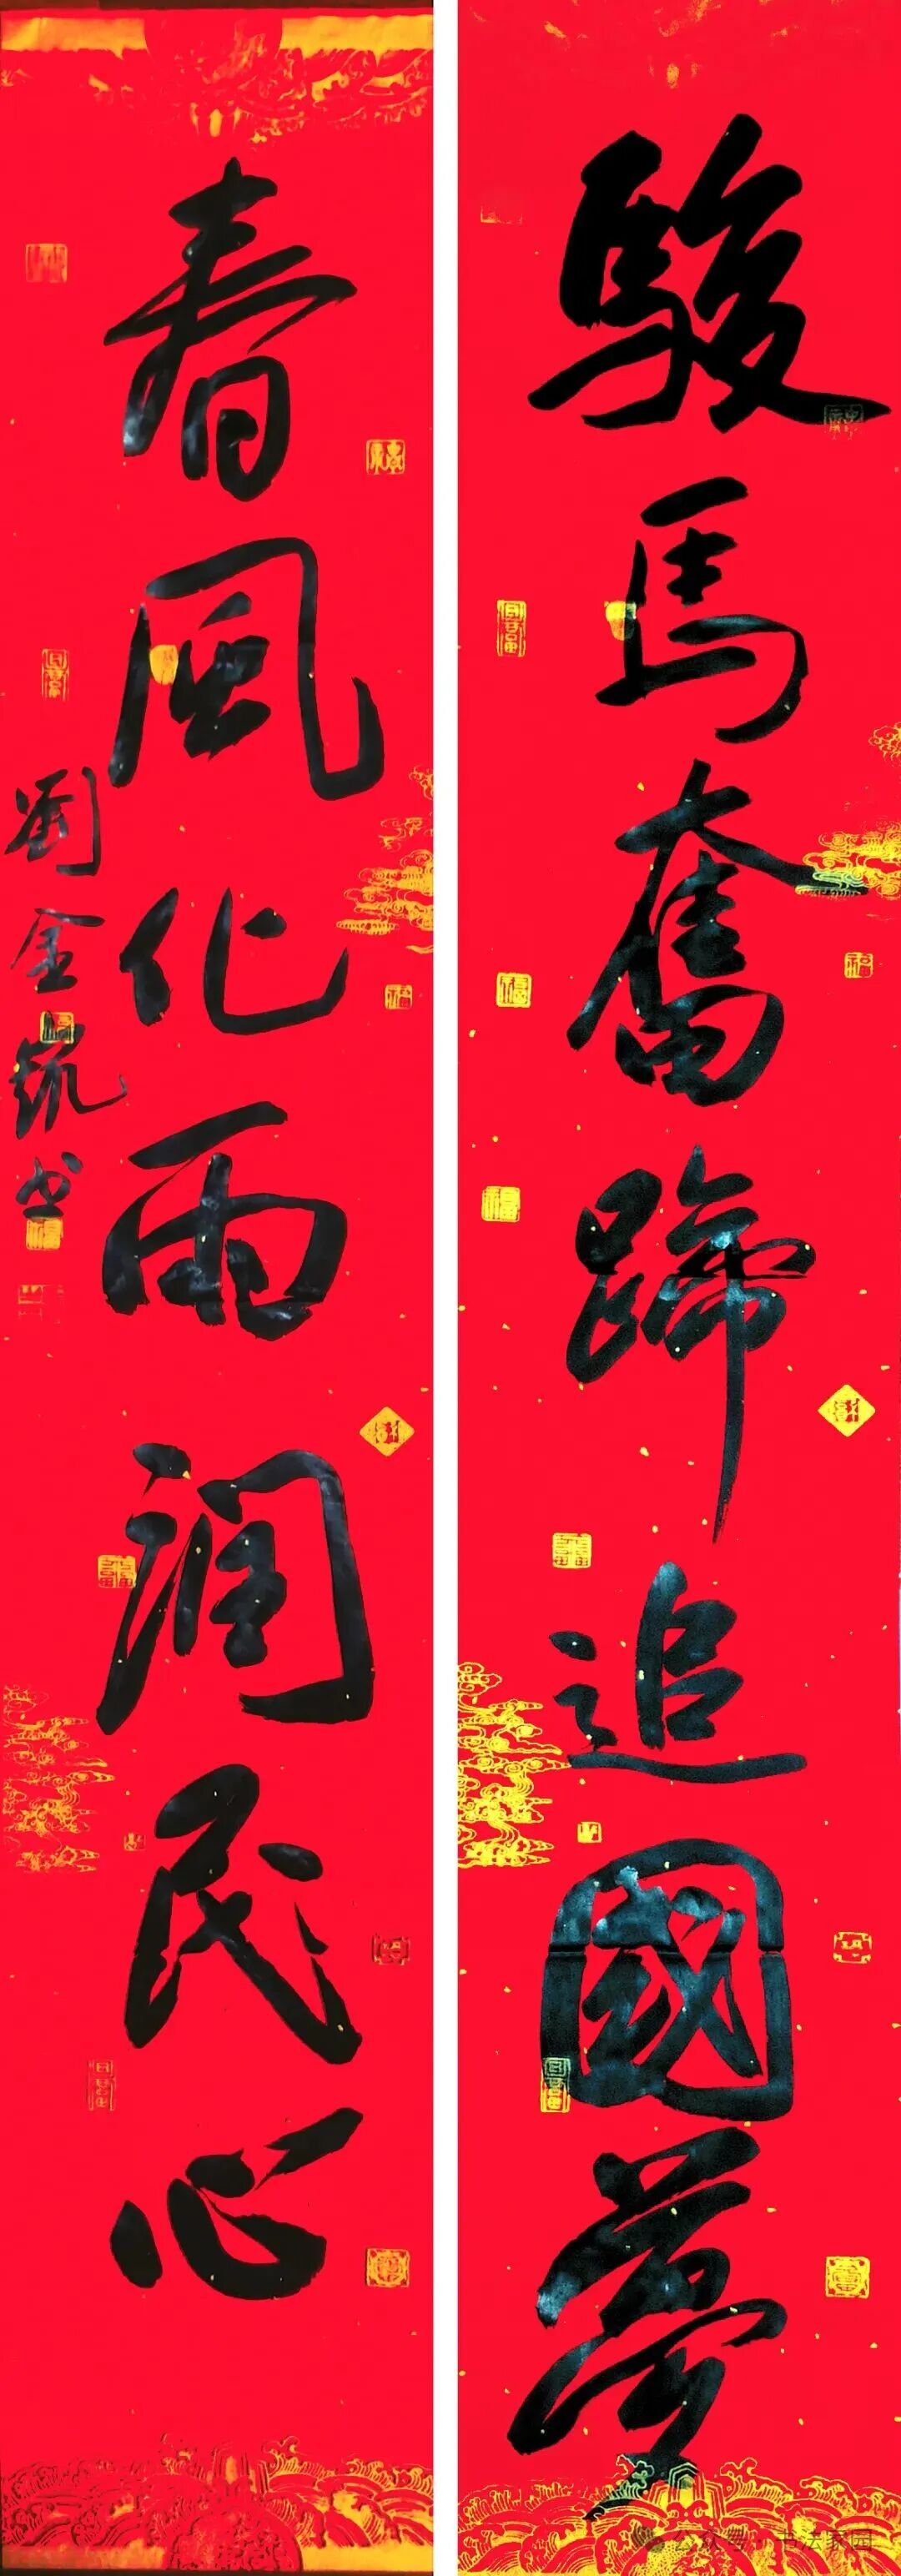 駿馬奮蹄追國夢
春風化雨潤民心
劉金凱书
公众号 · 书法家园